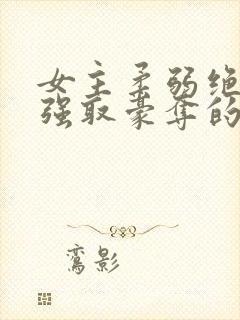 女主柔弱绝
强取豪夺的
鸾影